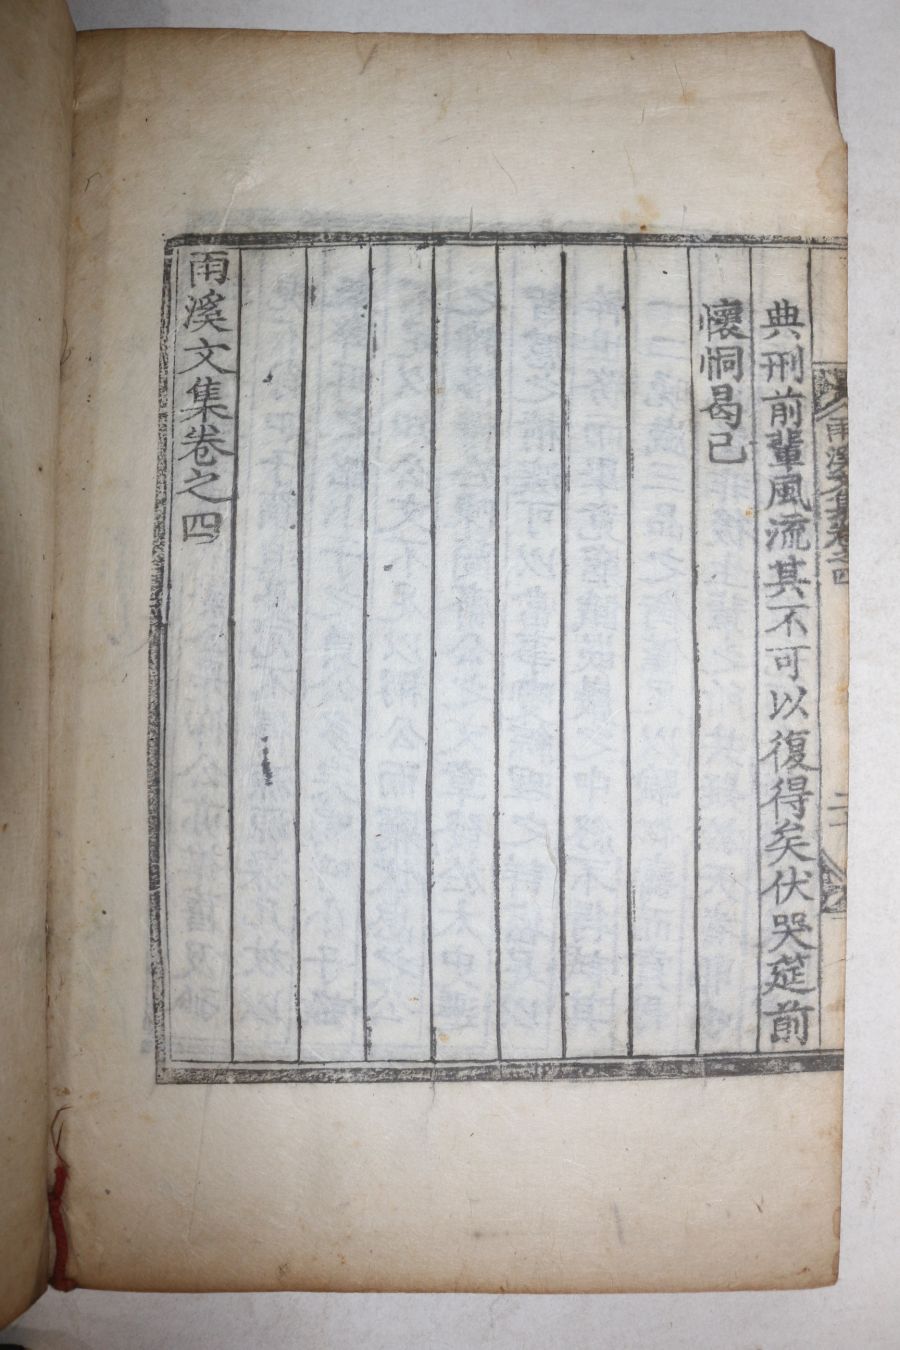 雨溪文集卷之四
典刑前輩風流其不可以復得矣伏哭筵前
懷恫曷已
雨溪文集卷之四